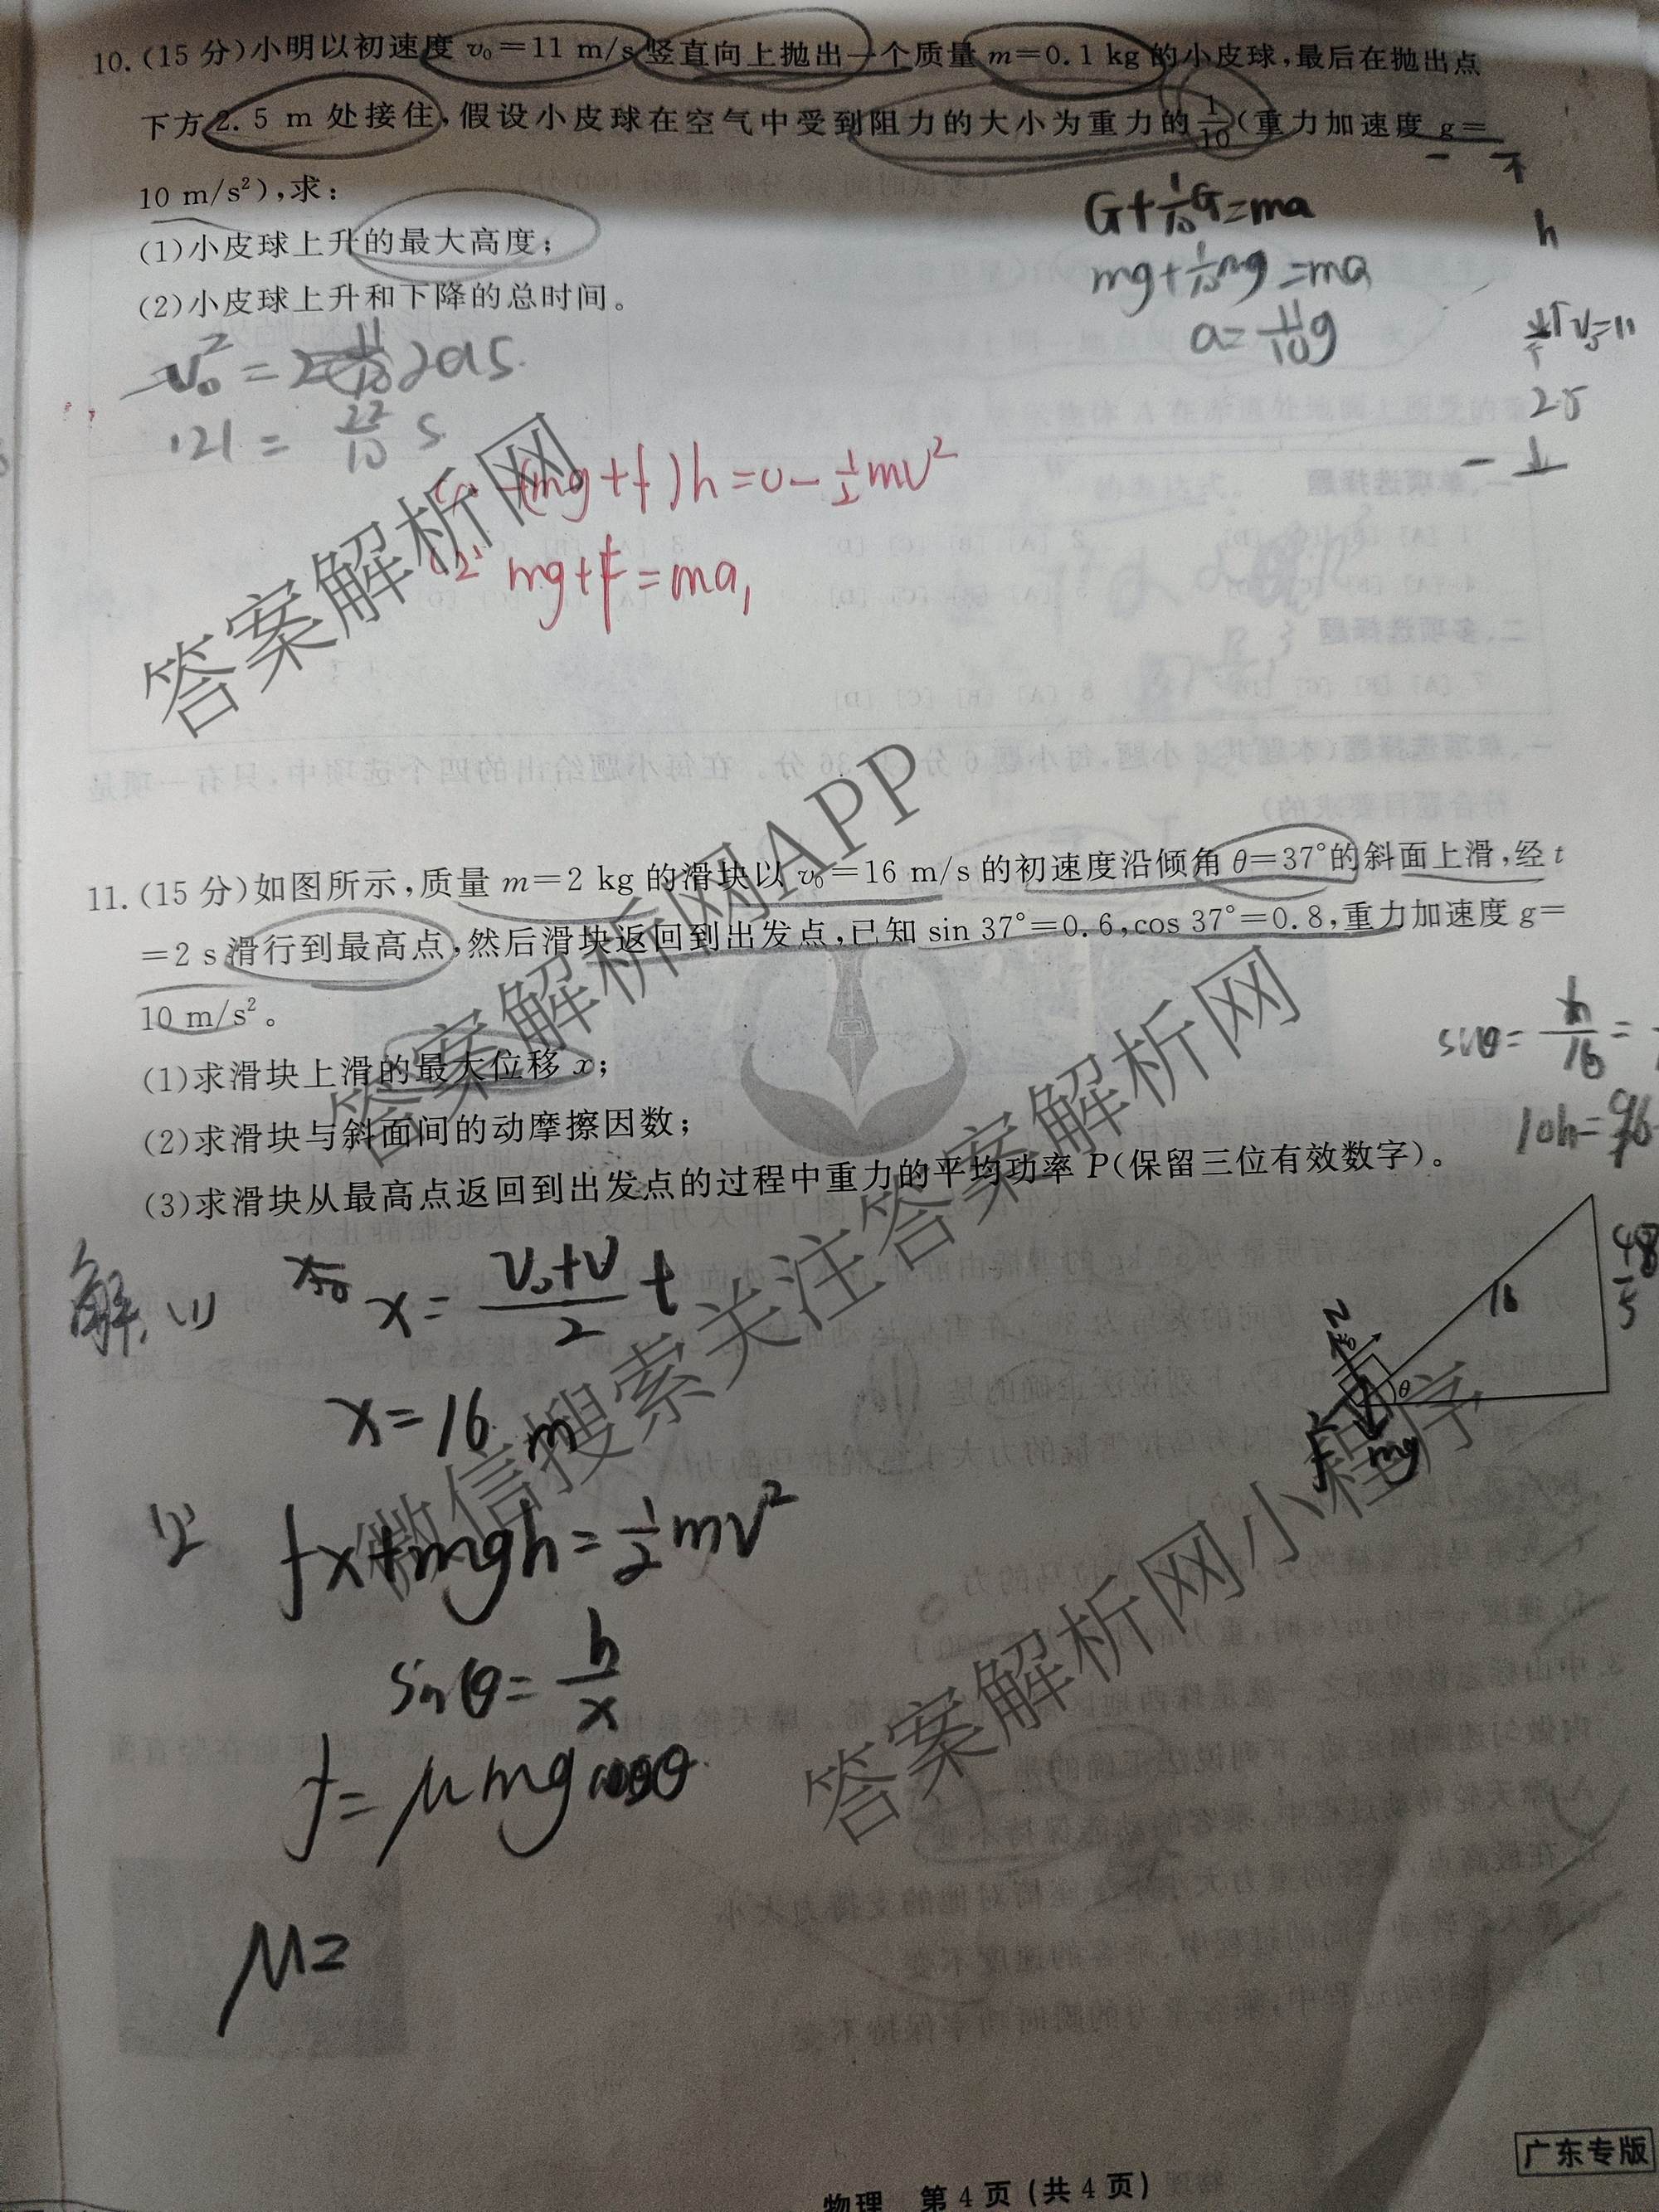 10. (15 分)小明以初速度 v₀=11 m/s 竖直向上抛出一个质量 m=0.1 kg 的小皮球,最后在抛出点
下方 2.5 m 处接住,假设小皮球在空气中受到阻力的大小为重力的 1/10 (重力加速度 g=
10 m/s²),求:
(1)小皮球上升的最大高度;
(2)小皮球上升和下降的总时间。
G+1/10G=ma
mg+1/10mg=ma
a=11/10g
h
v₀=11
25
v₀²=2as
121=22/10 s
(mg+f)h=0-1/2mv²
mg+F=ma₁
11. (15 分)如图所示,质量 m=2 kg 的滑块以 v₀=16 m/s 的初速度沿倾角 θ=37°的斜面上滑,经 t
=2 s 滑行到最高点,然后滑块返回到出发点,已知 sin 37°=0.6,cos 37°=0.8,重力加速度 g=
10 m/s²。
(1)求滑块上滑的最大位移 x;
(2)求滑块与斜面间的动摩擦因数;
(3)求滑块从最高点返回到出发点的过程中重力的平均功率 P(保留三位有效数字)。
sinθ=h/16=
10h=96
解:(1) x=(v₀+v)/2 t
x=16 m
(2) fx+mgh=1/2mv²
sinθ=h/x
f=μmgcosθ
μ=
16
48/5
N
θ
f
mg
答案解析网
答案解析网APP
微信搜索关注答案解析网
答案解析网小程序
广东专版
物理 第 4 页 (共 4 页)